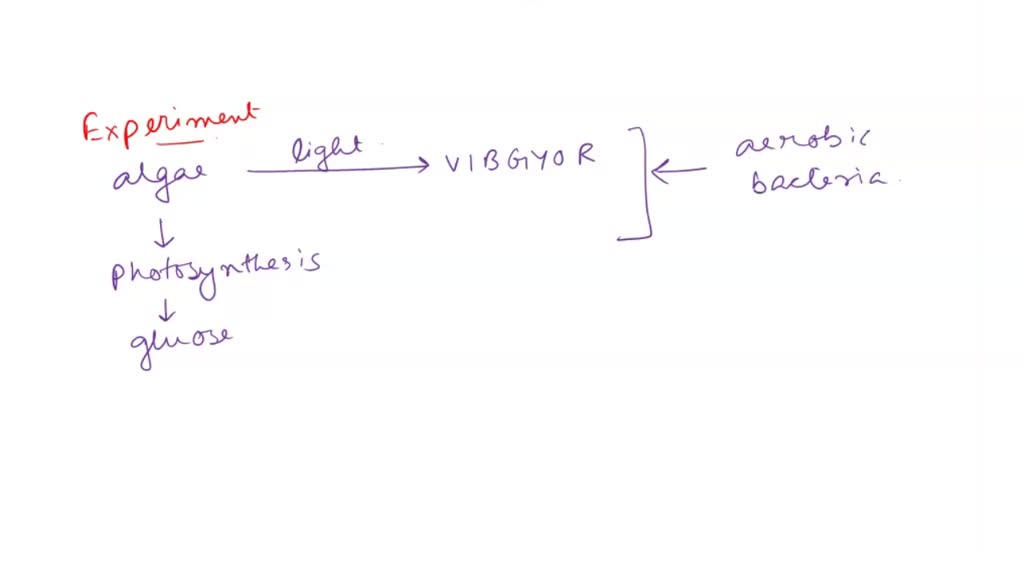 Experiment
algae light VIBGYOR aerobic
bacteria
photosynthesis
gluose